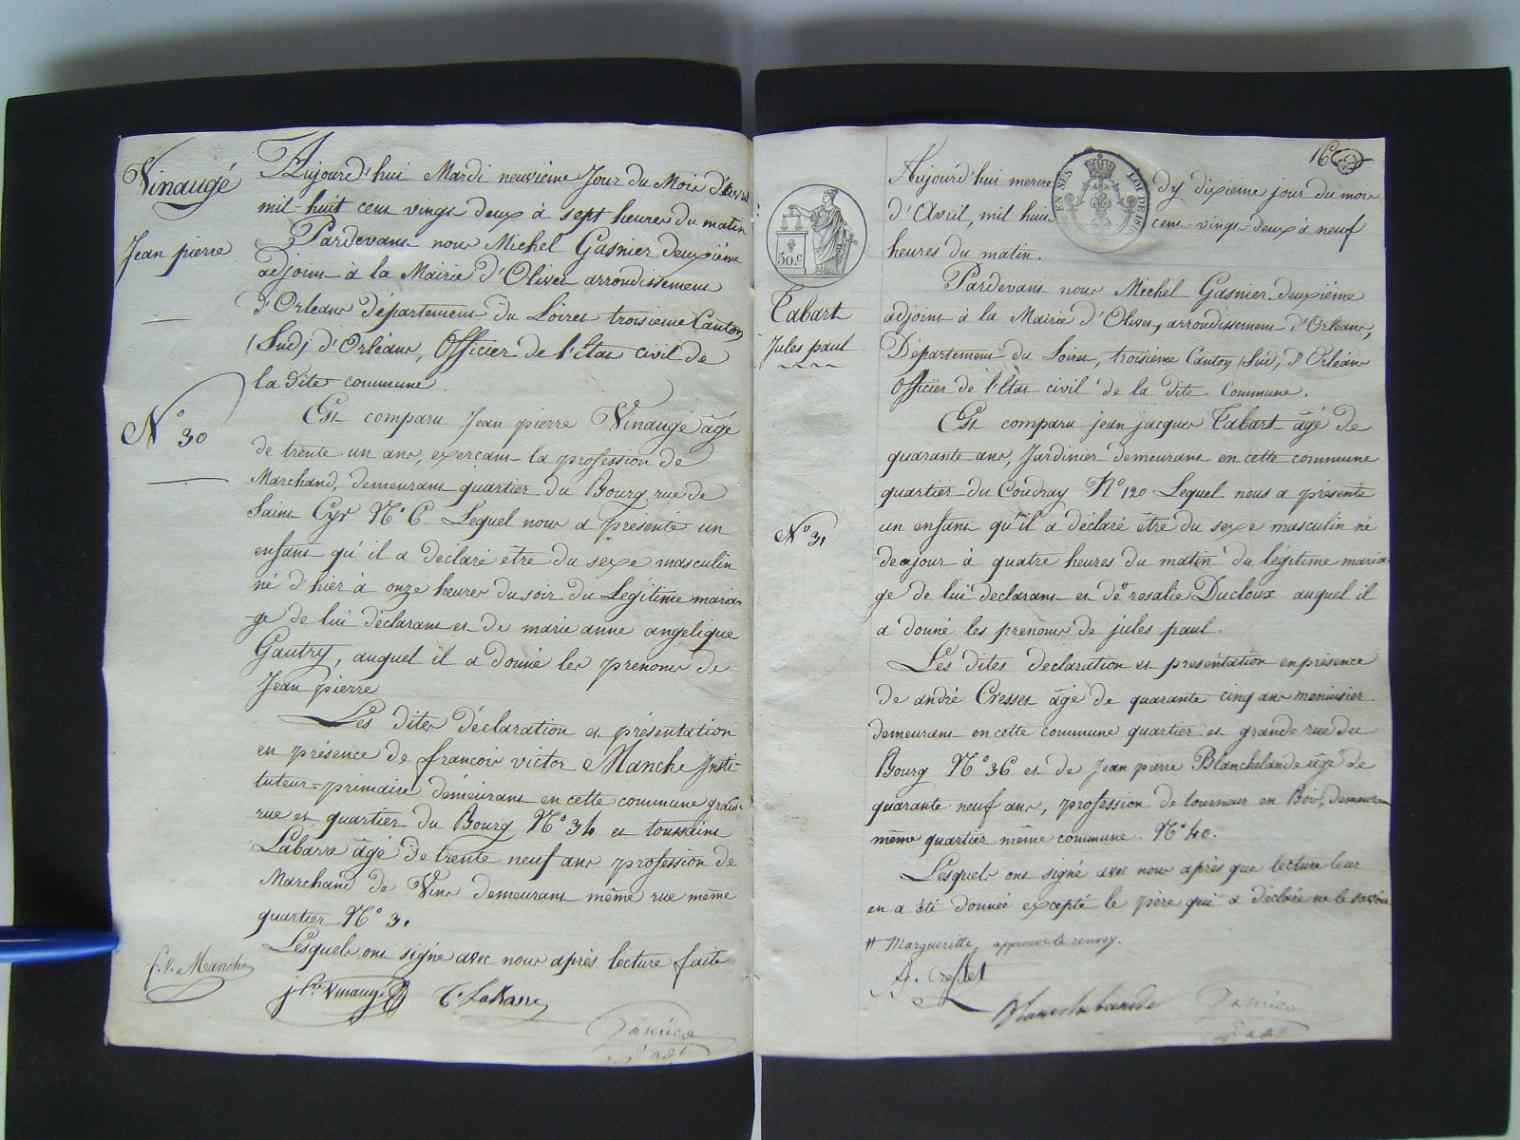 Vinaugé
Jean pierre
N° 30
Aujourd'hui Mardi neuvième Jour du Mois d'avril
mil-huit cent vingt deux à sept heures du matin
Pardevant nous Michel Gasnier deuxième
adjoint à la Mairie d'Olivet arrondissement
d'Orléans département du Loiret troisième Canton
(Sud) d'Orléans, Officier de l'État civil de
la dite commune
Est comparu Jean pierre Vinaugé âgé
de trente un ans, exerçant la profession de
Marchand, demeurant quartier du Bourg rue de
Saint Cyr N° 6 Lequel nous a présenté un
enfant qu'il a déclaré être du sexe masculin
né d'hier à onze heures du soir du Légitime maria-
ge de lui déclarant et de marie anne angelique
Gautry, auquel il a donné les prénoms de
Jean pierre
Les dites déclaration et présentation
en présence de françois victor Manche Insti-
tuteur-primaire demeurant en cette commune grande
rue et quartier du Bourg N° 34 et toussaint
Labarre âgé de trente neuf ans profession de
Marchand de Vins demeurant même rue même
quartier N° 3.
Lesquels ont signé avec nous après lecture faite
f. v. Manche
Vinaugé
T. Labarre
16
50.c
Tabart
Jules paul
N° 31
Aujourd'hui mercredy dixième jour du mois
d'Avril, mil huit cent vingt deux à neuf
heures du matin.
Pardevant nous Michel Gasnier deuxième
adjoint à la Mairie d'Olivet, arrondissement d'Orléans,
Département du Loiret, troisième Canton (Sud) d'Orléans
Officier de l'État civil de la dite Commune.
Est comparu jean jacques Tabart âgé de
quarante ans, Jardinier demeurant en cette commune
quartier du Coudray N° 120 Lequel nous a présenté
un enfant qu'il a déclaré être du sexe masculin né
de ce jour à quatre heures du matin du légitime maria-
ge de lui déclarant et de # rosalie Ducloux auquel il
a donné les prenoms de jules paul.
Les dites déclaration et présentation en présence
de andré Cresset âgé de quarante cinq ans menuisier
demeurant en cette commune quartier et grande rue du
Bourg N° 36 et de Jean pierre Blanchelande âgé de
quarante neuf ans, profession de tourneur en Bois, demeurant
même quartier même commune N° 40.
Lesquels ont signé avec nous après que lecture leur
en a été donnée excepté le père qui a déclaré ne le savoir
# Margueritte approuvé le renvoy.
A. Cresset
Blanchelande